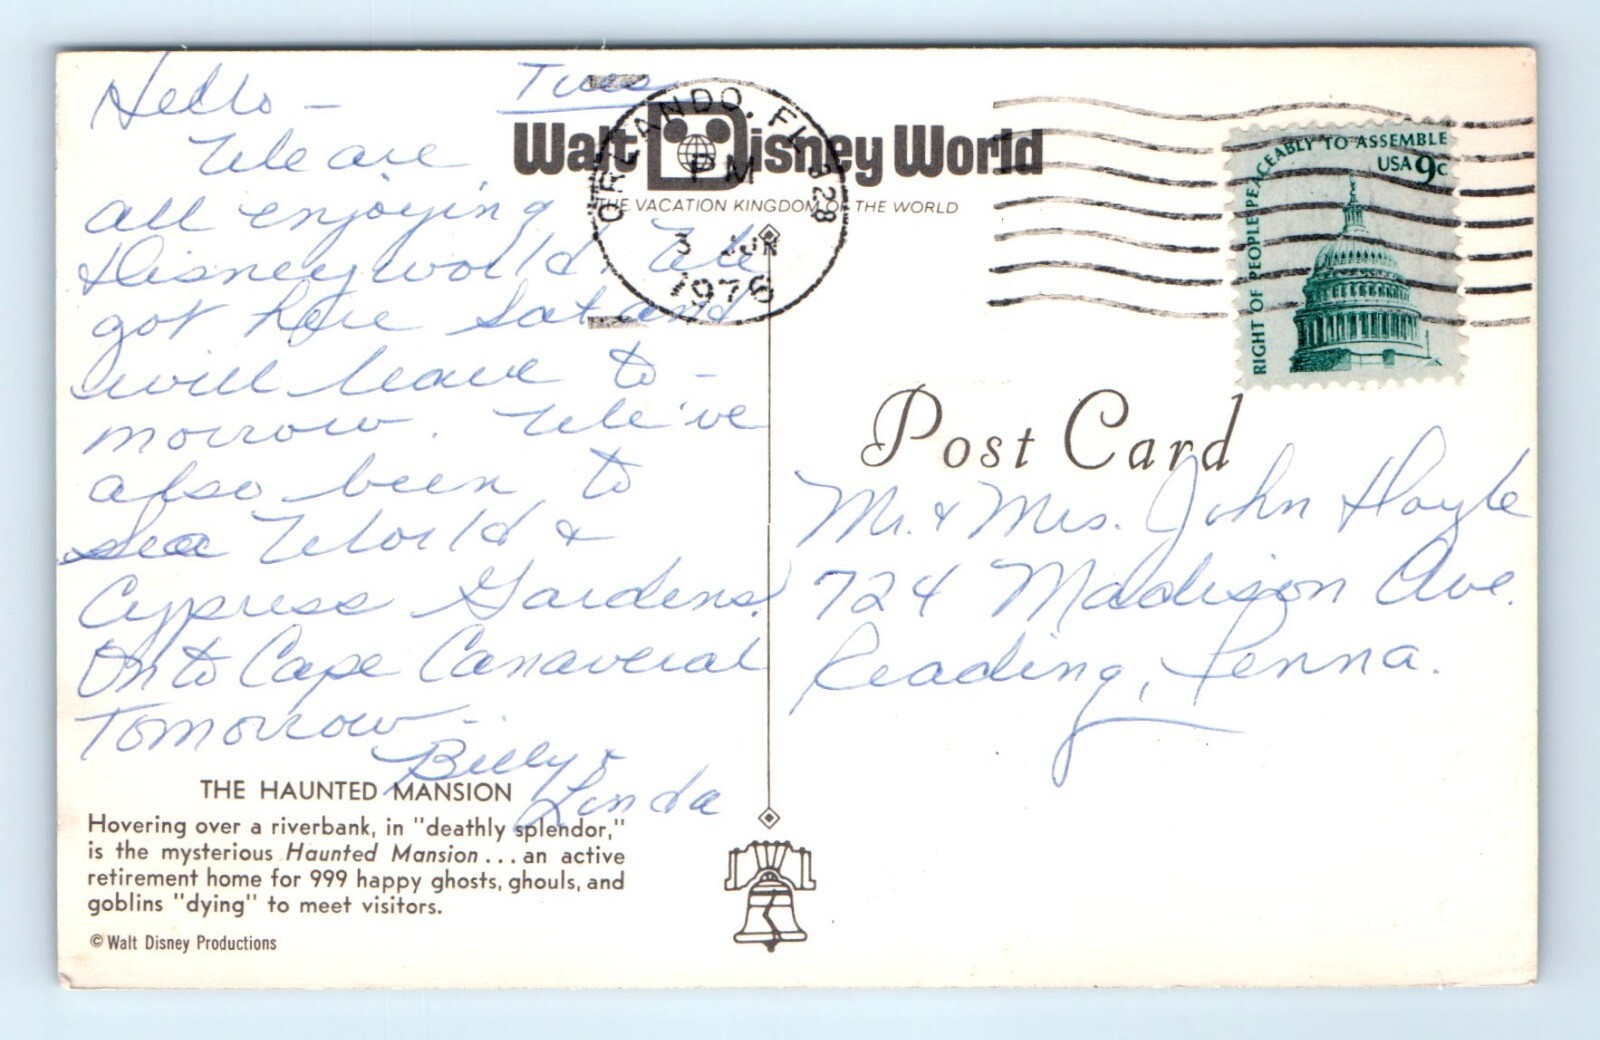 Hello - Tues
We are
all enjoying
Disneyworld. We
got here Sat and
will leave to -
morrow. We've
also been to
Sea World &
Cypress Gardens.
On to Cape Canaveral
Tomorrow -
Billy &
Linda
THE HAUNTED MANSION
Hovering over a riverbank, in "deathly splendor,"
is the mysterious Haunted Mansion... an active
retirement home for 999 happy ghosts, ghouls, and
goblins "dying" to meet visitors.
© Walt Disney Productions
Walt Disney World
THE VACATION KINGDOM OF THE WORLD
ORLANDO, FL 328
PM
3 JUN
1976
RIGHT OF PEOPLE PEACEABLY TO ASSEMBLE
USA 9c
Post Card
Mr. & Mrs. John Hoyle
724 Madison Ave.
Reading, Penna.